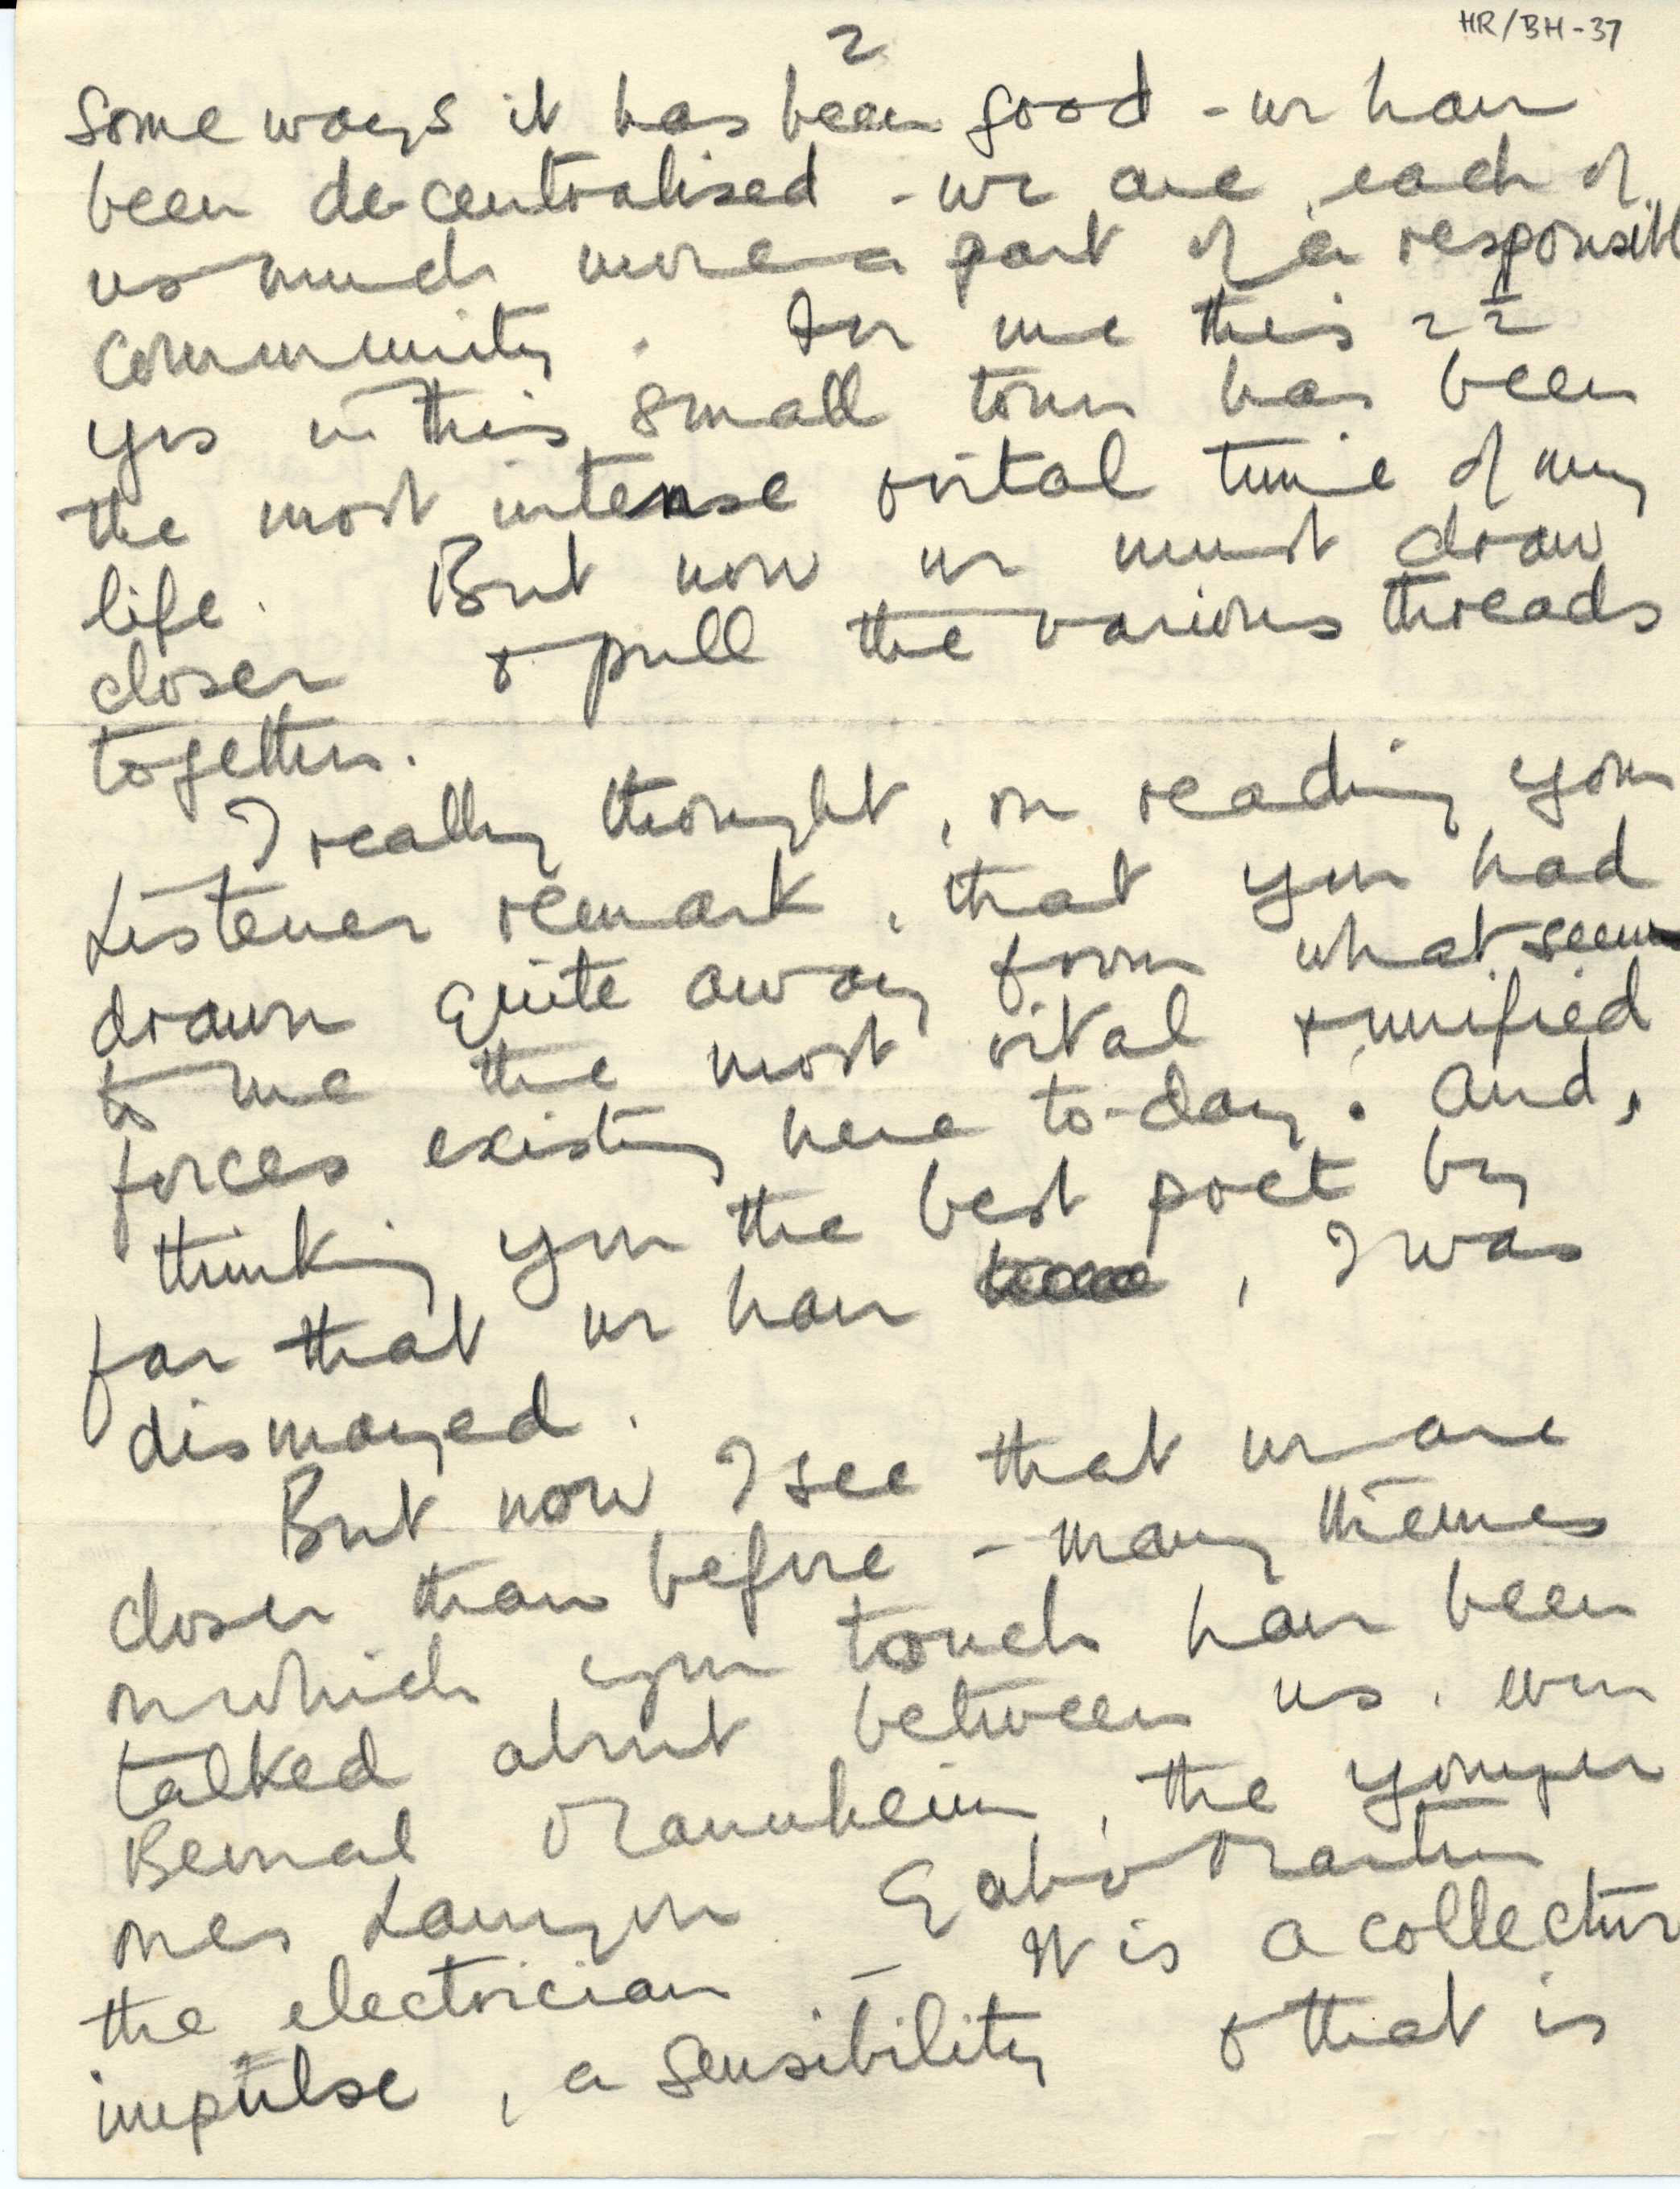 HR/BH-37
2
some ways it has been good - we have
been de-centralised - we are each of
us much more a part of a responsibl
community. For me this 2 1/2
yrs in this small town has been
the most intense & vital time of my
life. But now we must draw
closer & pull the various threads
together.
I really thought, on reading your
Listener remark, that you had
drawn quite away from what seems
to me the most vital & unified
forces existing here to-day. And,
thinking you the best poet by
far that we have, I was
dismayed.
But now I see that we are
closer than before - many themes
on which you touch have been
talked about between us. even
Bernal Mannheim, the younger
ones Lanyon Gabo Martin
the electrician - It is a collective
impulse, a sensibility & that is